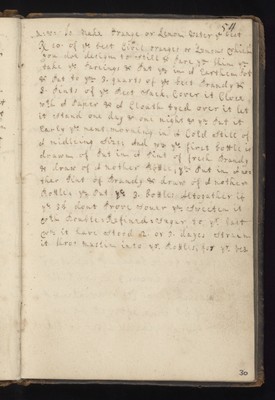 54
How to Make Orange or Lemon Water ye best
12 or of ye best Civil oranges or Lemons which
you
take ye Pareings & Put ym in a Earthen Pott
& Put to ym 3 quarts of ye best Brandy &
3 Pints of ye Best Sack, Cover it Close
with a Paper & a Cloath tyed over it let
it stand one day & one night & yn Put it
Early ye next morning in a Cold Still of
a midling Sizes and wn ye first bottle is
drawn of Put in a Pint of fresh Brandy
& draw of a nother Bottle, yn Put in a no
ther Pint of Brandy & draw of a nother
Bottle yn Put ye 3 Bottles Altogether if
ye 3d dont Prove Sower yn Sweeten it
with Double Refined Sugar to ye tast
wn it have stood 2 or 3 dayes Strain
it thro Muslin into ye Bottles, for ye use
30